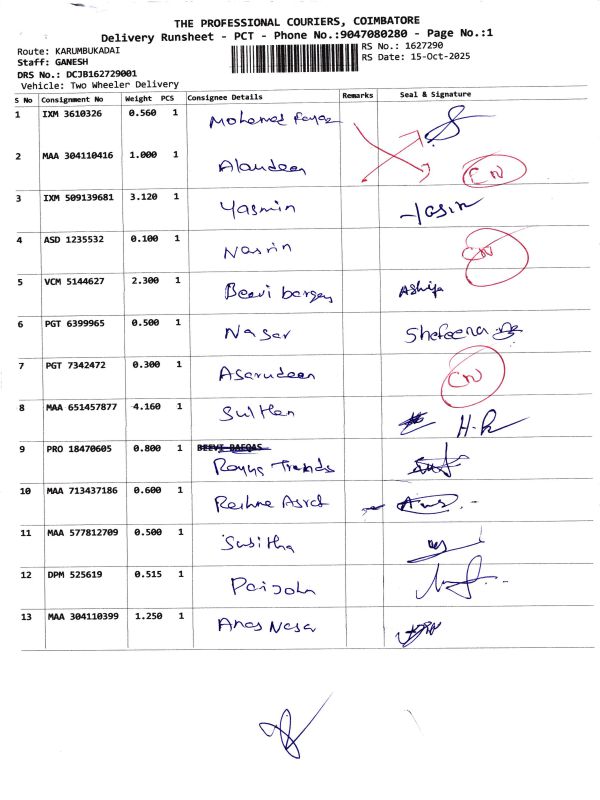 THE PROFESSIONAL COURIERS, COIMBATORE
Delivery Runsheet - PCT - Phone No.:9047080280 - Page No.:1
Route: KARUMBUKADAI
RS No.: 1627290
Staff: GANESH
RS Date: 15-Oct-2025
DRS No.: DCJB162729001
Vehicle: Two Wheeler Delivery
S No Consignment No Weight PCS Consignee Details Remarks Seal & Signature
1 IXM 3610326 0.560 1 Mohamed Fayaz
2 MAA 304110416 1.000 1 Alaudeen CN
3 IXM 509139681 3.120 1 Yasmin Yasin
4 ASD 1235532 0.100 1 Nasrin CN
5 VCM 5144627 2.300 1 Beevi Ashifa
6 PGT 6399965 0.500 1 Nasar Shefeena
7 PGT 7342472 0.300 1 Asarudeen CN
8 MAA 651457877 4.160 1 Sulthan H.R
9 PRO 18470605 0.800 1 Trends
10 MAA 713437186 0.600 1
11 MAA 577812709 0.500 1 Susitha
12 DPM 525619 0.515 1
13 MAA 304110399 1.250 1 Anas Nasar